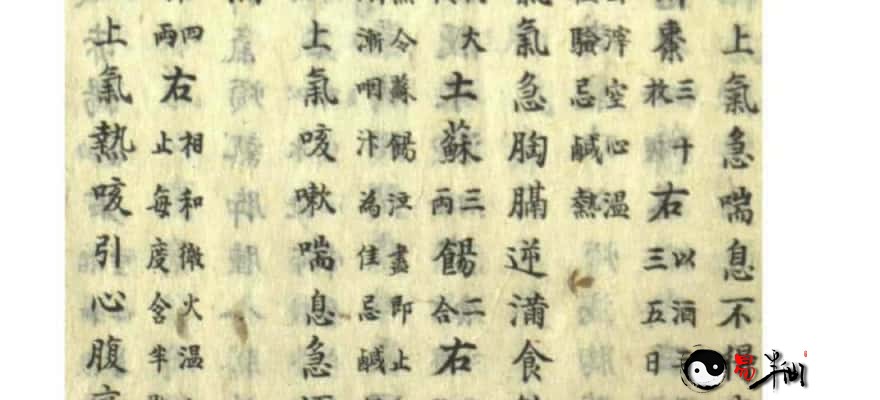 上氣急喘息不得
棗三十枚右以酒三五日
滓空心溫
驗忌鹹熱
氣急胸膈逆滿食
大土蘇三兩餳二合右
令蘇餳盡即止
漸咽汁為佳忌鹹
上氣咳嗽喘息急
四兩右相和微火溫
止每度含半
上氣熱咳引心腹
易半仙